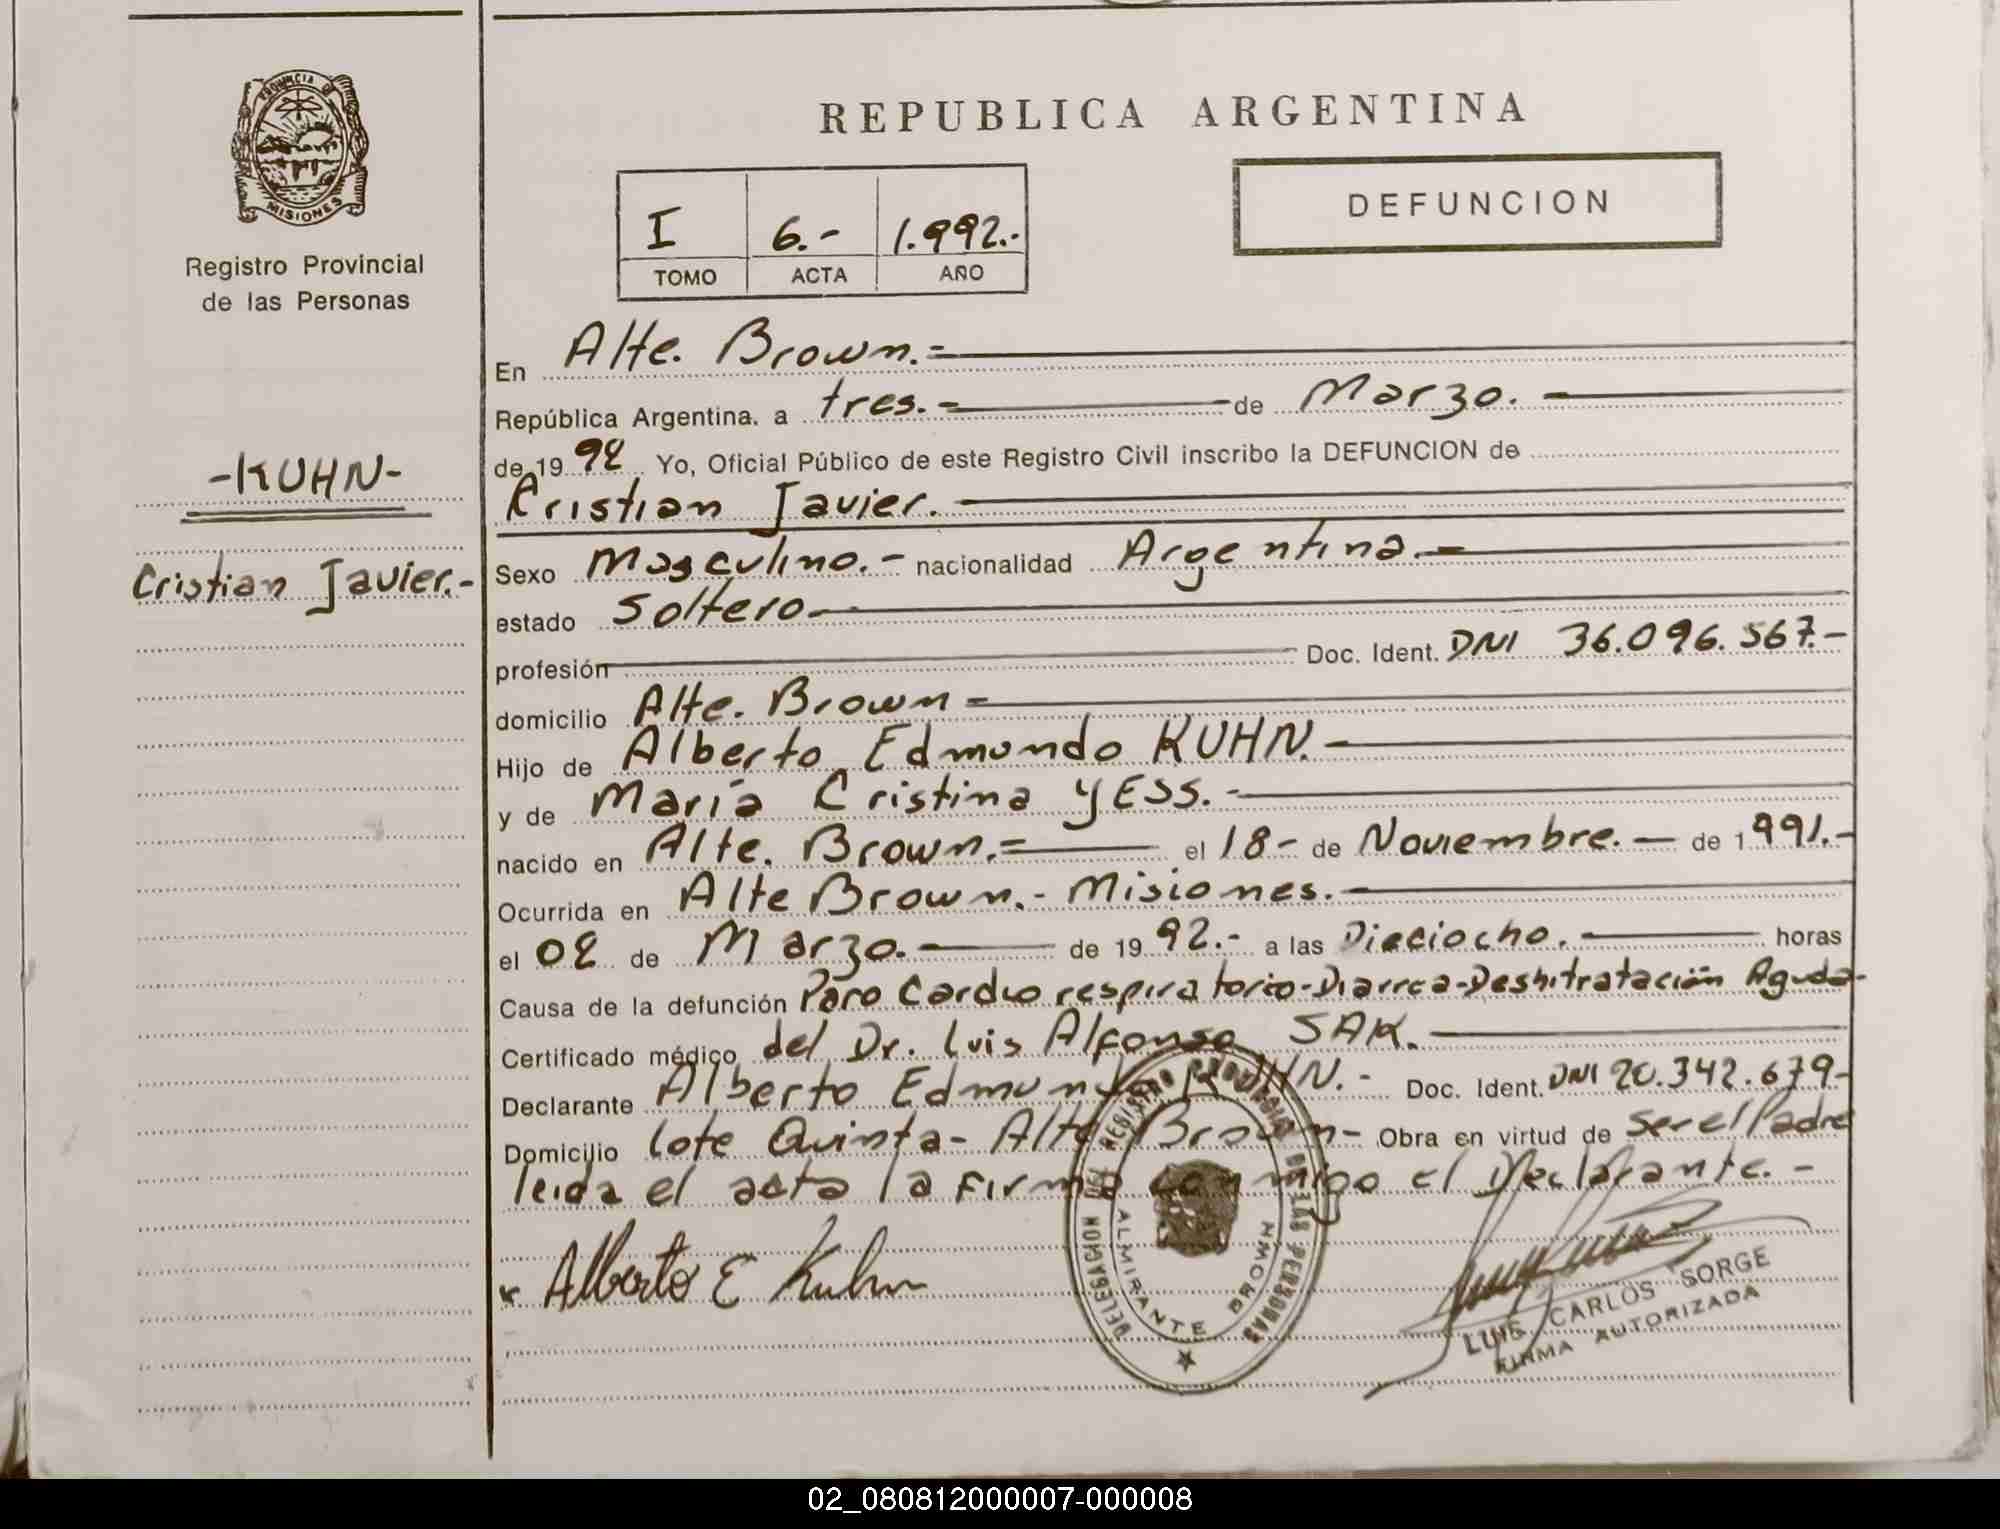 PROVINCIA DE
MISIONES
Registro Provincial
de las Personas
-KUHN-
Cristian Javier.-
REPUBLICA ARGENTINA
DEFUNCION
I 6.- 1.992.-
TOMO ACTA AÑO
En Alte. Brown.=
República Argentina. a tres.- de Marzo.
de 19 92 Yo, Oficial Público de este Registro Civil inscribo la DEFUNCION de
Cristian Javier.-
Sexo Masculino.- nacionalidad Argentina.-
estado Soltero-
profesión Doc. Ident. DNI 36.096.567.-
domicilio Alte. Brown-
Hijo de Alberto Edmundo KUHN.-
y de María Cristina YESS.-
nacido en Alte. Brown.= el 18- de Noviembre.- de 1991.-
Ocurrida en Alte Brown.- Misiones.-
el 02 de Marzo.- de 19 92.- a las Dieciocho.- horas
Causa de la defunción Paro Cardio respiratorio-Diarrea-Deshitratación Aguda-
Certificado médico del Dr. Luis Alfonso SAK.-
Declarante Alberto Edmundo KUHN.- Doc. Ident. DNI 20.342.679-
Domicilio lote Quinta- Alte Brown- Obra en virtud de ser el Padre
leida el acta la firma conmigo el Declarante.-
Alberto E Kuhn
DELEGACION DEL REGISTRO PROVINCIAL DE LAS PERSONAS
ALMIRANTE BROWN
LUIS CARLOS SORGE
FIRMA AUTORIZADA
02_080812000007-000008